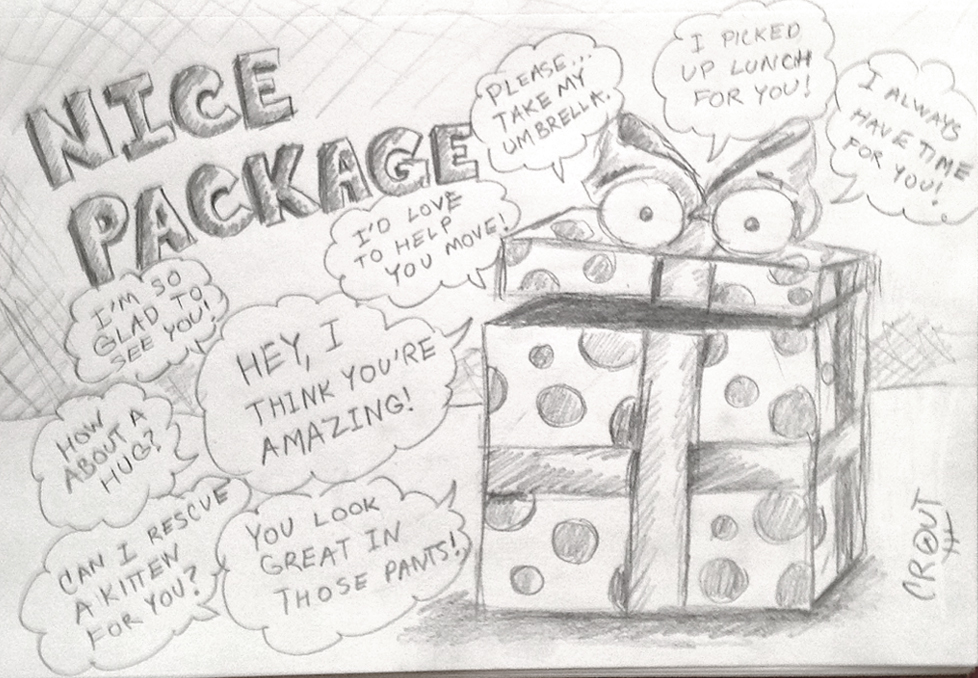 NICE
PACKAGE
PLEASE...
TAKE MY
UMBRELLA.
I PICKED
UP LUNCH
FOR YOU!
I ALWAYS
HAVE TIME
FOR YOU!
I'D LOVE
TO HELP
YOU MOVE!
I'M SO
GLAD TO
SEE YOU!
HEY, I
THINK YOU'RE
AMAZING!
HOW
ABOUT A
HUG?
CAN I RESCUE
A KITTEN
FOR YOU?
YOU LOOK
GREAT IN
THOSE PANTS!